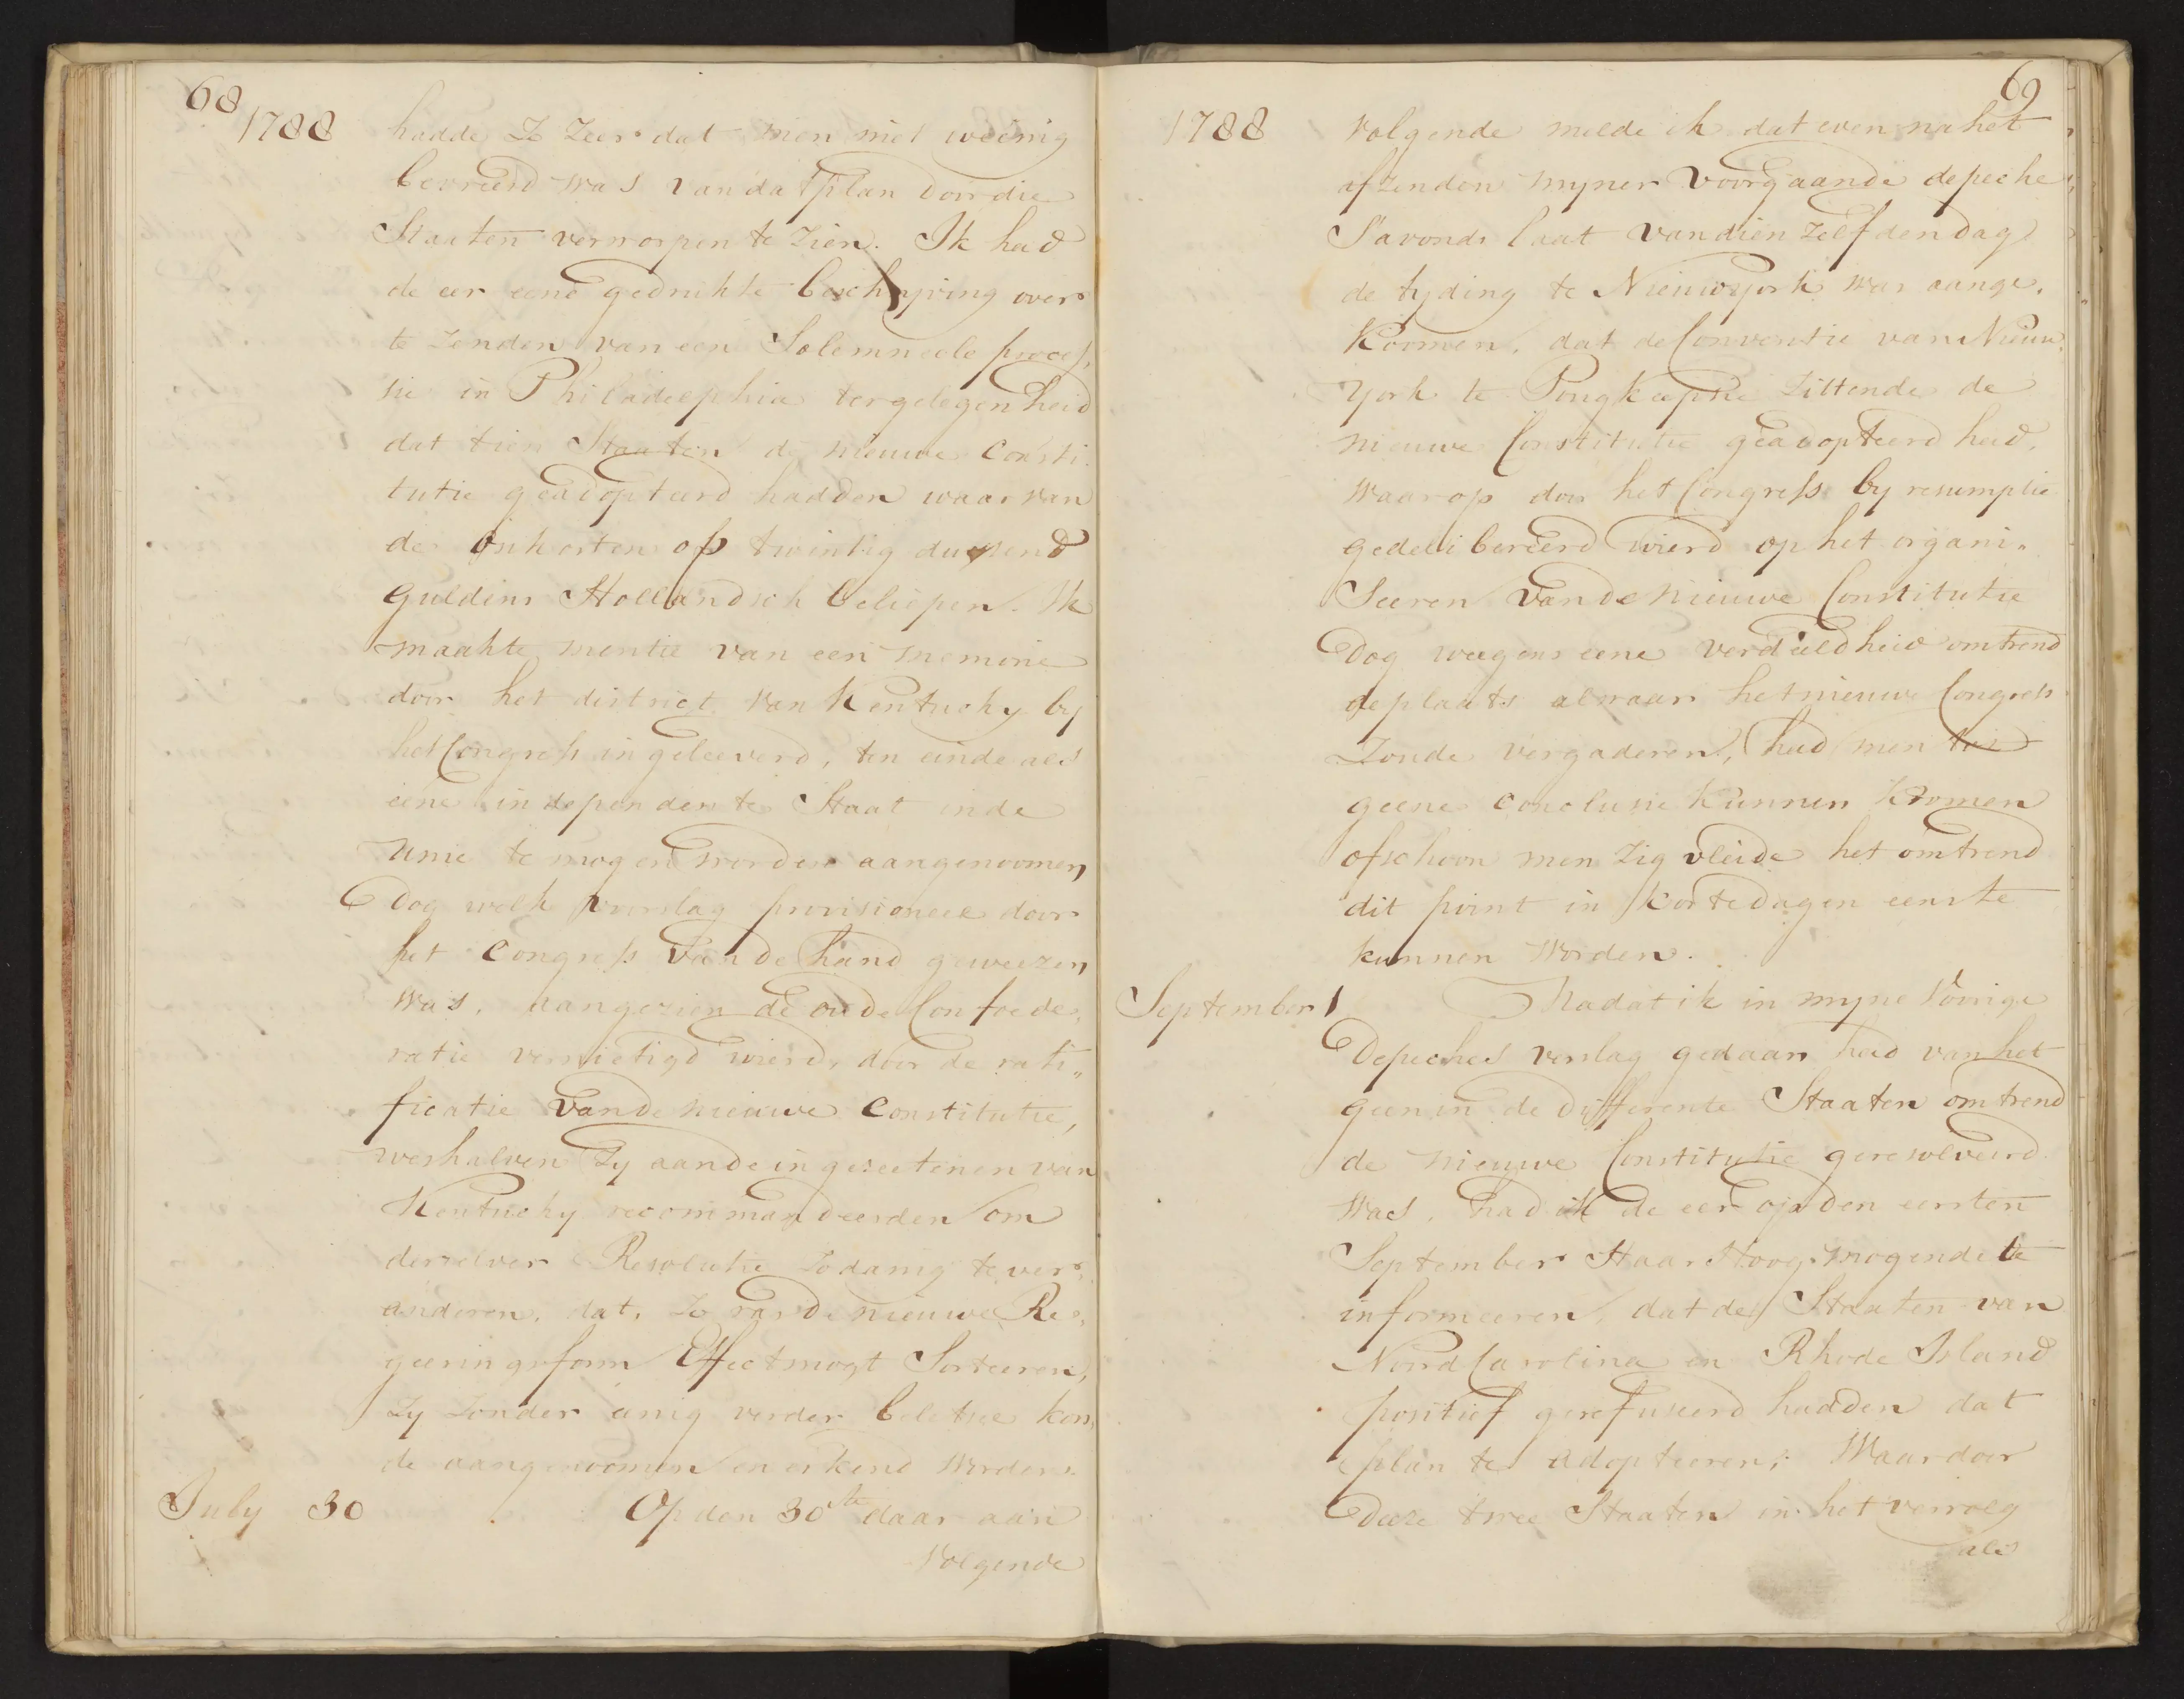 68
1788
hadde Zo Zeer dat men niet weinig
bevreesd was van dat plan door die
Staaten verworpen te zien. Ik had
de eer eene gedrukte beschryving over
te Zenden van een Solemneele proces,
sie in Philadelphia ter gelegenheid
dat tien Staaten de nieuwe Consti
tutie geadopteerd hadden waar van
de onkosten op twintig duysend
Guldens Hollandsch beliepen. Ik
maakte mentie van een memorie
door het district van Kentucky by
het Congress ingeleeverd, ten einde als
eene independente Staat in de
Unie te mogen worden aangenoomen,
Dog welk verslag provisioneel door
het Congress van de hand geweezen
was, aangezien de oude Confoede,,
ratie vernietigd wierd, door de rati,,
ficatie van de nieuwe Constitutie,
weshalven Zy aan de ingezeetenen van
Kentucky recommandeerden om
derzelver Resolutie Zodanig te ver,,
anderen, dat, Zo ras de nieuwe Re,,
geeringsform Effect mogt Sorteeren,
Zy Zonder eenig verder beletsel kon,
de aangenoomen en erkend worden.
July 30
Op den 30te daar aan
Volgende
69
1788
Volgende melde ik dat even na het
afzenden myner voorgaande depeche
S'avonds laat van dien zelfden dag
de tyding te Nieuwyork was aange,
koomen, dat de Conventie van Nieuw
York te Pougkeepsie Zittende de
nieuwe Constitutie geadopteerd had,
waarop door het Congress by resumptie
gedelibereerd wierd op het organi,,
Seeren van de nieuwe Constitutie
Dog weegens eene verdeeldheid omtrend
de plaats alwaar het nieuwe Congress
Zoude vergaderen, had men tot
geene conclusie kunnen koomen
ofschoon men Zig vleide het omtrend
dit point in korte dagen eens te
kunnen worden.
September 1
Nadat ik in myne Voorige
Depeches verslag gedaan had van het
geen in de differente Staaten omtrend
de nieuwe Constitutie geresolveerd
was, had ik de eer op den eersten
September Haar Hoog Mogende te
informeeren, dat de Staaten van
Noord Carolina en Rhode Island
positief gerefuseerd hadden dat
plan te adopteeren; Waar door
Deeze twee Staaten in het vervolg
als